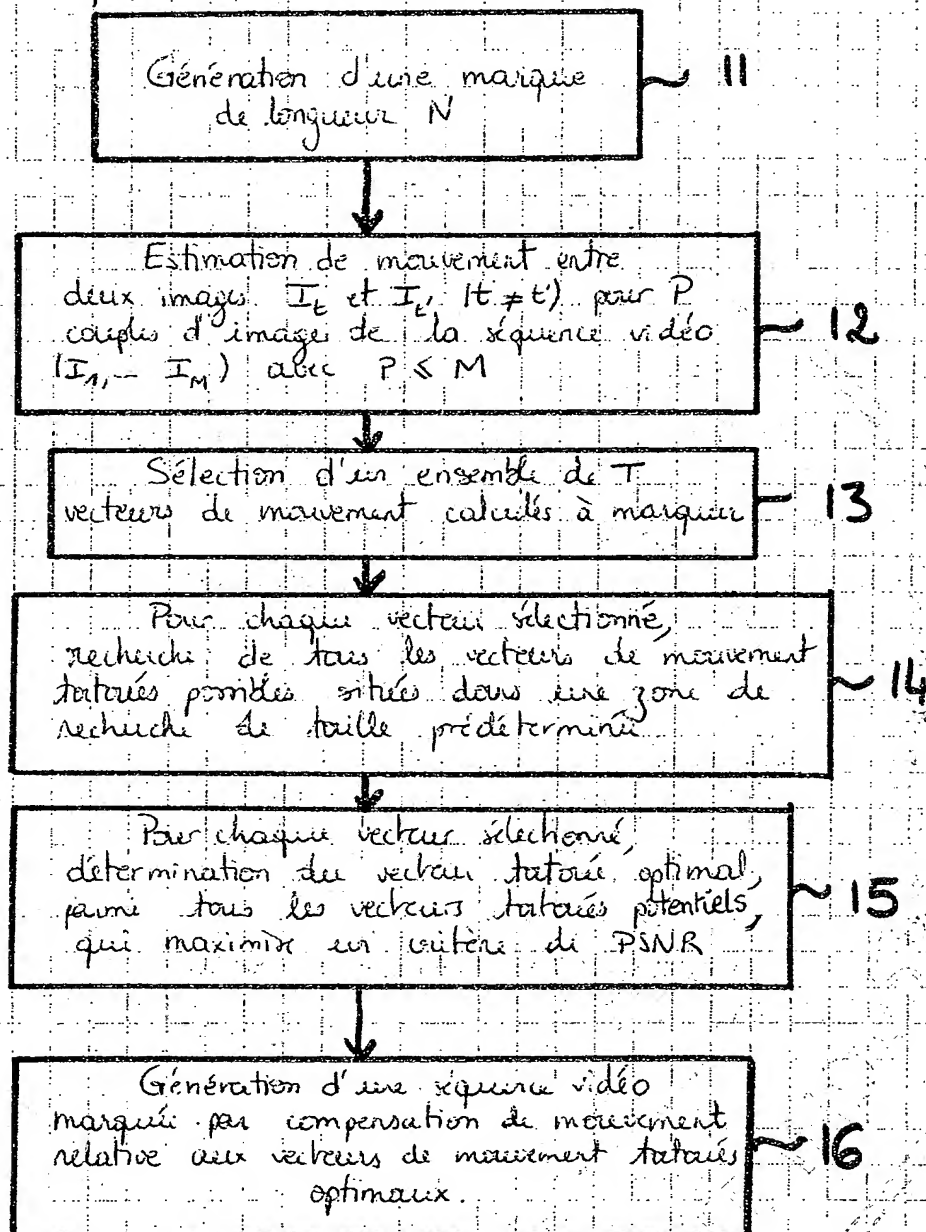 Génération d'une marque
de longueur N
11
Estimation de mouvement entre
deux images I_t et I_t' (t ≠ t') pour P
couples d'images de la séquence vidéo
(I_1, — I_M) avec P ⩽ M
12
Sélection d'un ensemble de T
vecteurs de mouvement calculés à marquer
13
Pour chaque vecteur sélectionné,
recherche de tous les vecteurs de mouvement
tatoués possibles situés dans une zone de
recherche de taille prédéterminée
14
Pour chaque vecteur sélectionné,
détermination du vecteur tatoué optimal,
parmi tous les vecteurs tatoués potentiels,
qui maximise un critère de PSNR
15
Génération d'une séquence vidéo
marquée par compensation de mouvement
relative aux vecteurs de mouvement tatoués
optimaux.
16